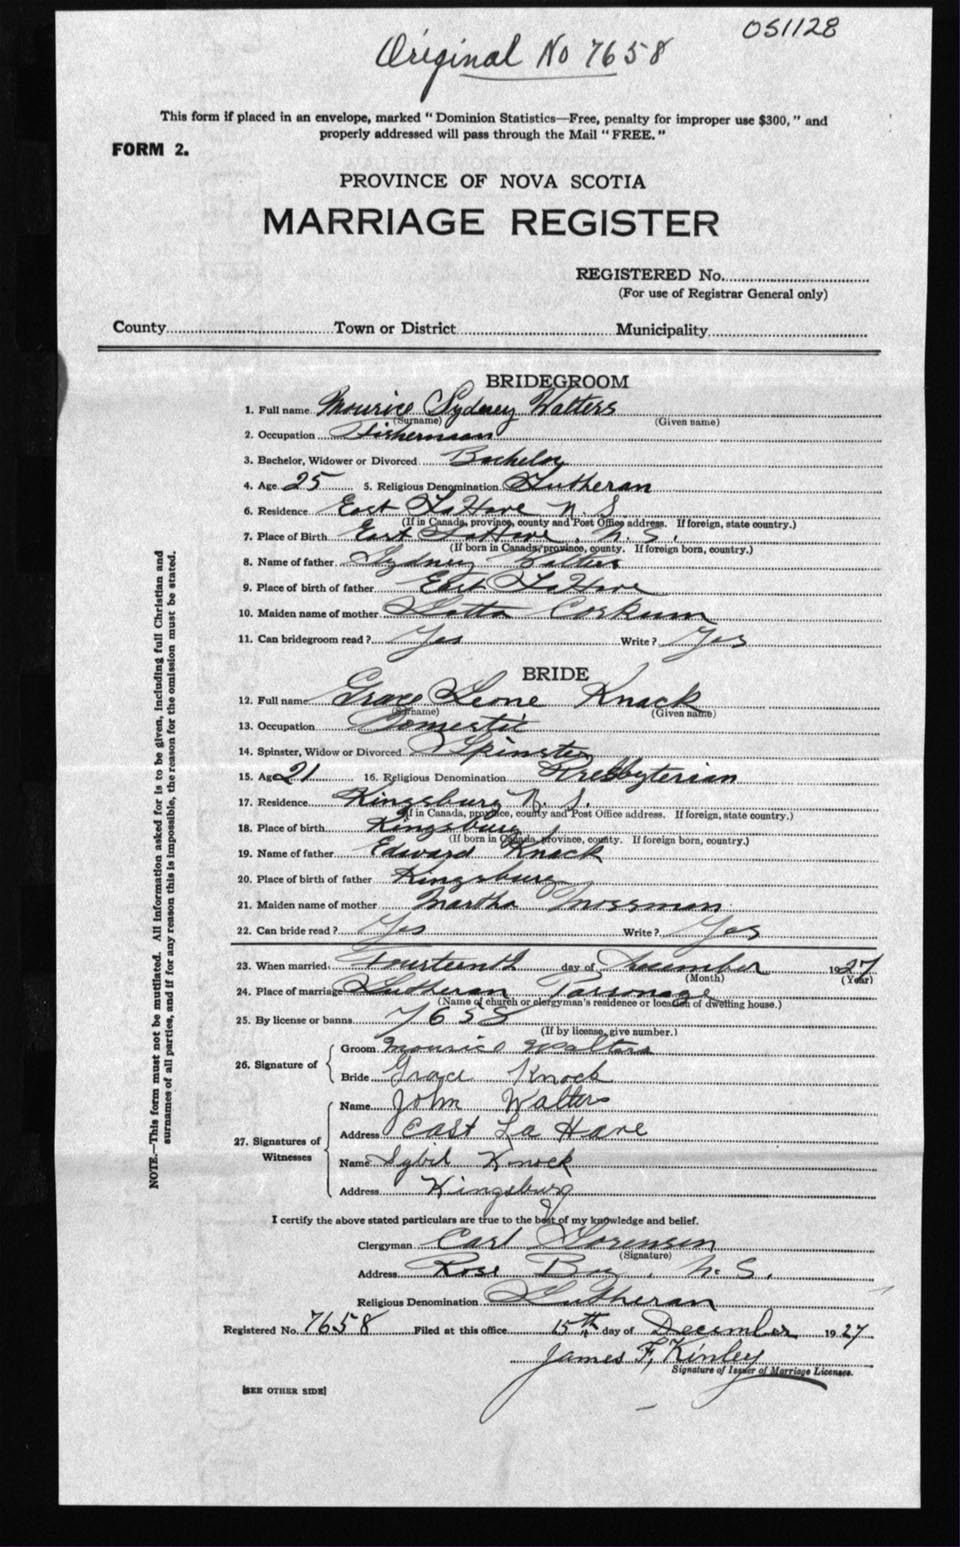 051128
Original No 7658
This form if placed in an envelope, marked "Dominion Statistics—Free, penalty for improper use $300," and
properly addressed will pass through the Mail "FREE."
FORM 2.
PROVINCE OF NOVA SCOTIA
MARRIAGE REGISTER
REGISTERED No.
(For use of Registrar General only)
County Town or District Municipality
BRIDEGROOM
1. Full name Mourice Sydney Walters
(Surname) (Given name)
2. Occupation Fisherman
3. Bachelor, Widower or Divorced Bachelor
4. Age 25 5. Religious Denomination Lutheran
6. Residence East LaHave N. S.
(If in Canada, province, county and Post Office address. If foreign, state country.)
7. Place of Birth East LaHave, N. S.
(If born in Canada, province, county. If foreign born, country.)
8. Name of father Sydney Walters
9. Place of birth of father East LaHave
10. Maiden name of mother Lotta Corkum
11. Can bridegroom read? Yes Write? Yes
BRIDE
12. Full name Grace Leone Knock
(Surname) (Given name)
13. Occupation Domestic
14. Spinster, Widow or Divorced Spinster
15. Age 21 16. Religious Denomination Presbyterian
17. Residence Kingsburg N. S.
(If in Canada, province, county and Post Office address. If foreign, state country.)
18. Place of birth Kingsburg
(If born in Canada, province, county. If foreign born, country.)
19. Name of father Edward Knock
20. Place of birth of father Kingsburg
21. Maiden name of mother Martha Mossman
22. Can bride read? Yes Write? Yes
23. When married Fourteenth day of December 1927
(Month) (Year)
24. Place of marriage Lutheran Parsonage
(Name of church or clergyman's residence or location of dwelling house.)
25. By license or banns 7658
(If by license, give number.)
26. Signature of
Groom Mourice Walters
Bride Grace Knock
27. Signatures of Witnesses
Name John Walters
Address East La Have
Name Sybil Knock
Address Kingsburg
I certify the above stated particulars are true to the best of my knowledge and belief.
Clergyman Carl Sorensen
(Signature)
Address Rose Bay, N. S.
Religious Denomination Lutheran
Registered No. 7658 Filed at this office 15th day of December 1927
James F. Kinley
Signature of Issuer of Marriage Licenses.
[SEE OTHER SIDE]
NOTE.—This form must not be mutilated. All information asked for is to be given, including full Christian and
surnames of all parties, and if for any reason this is impossible, the reason for the omission must be stated.